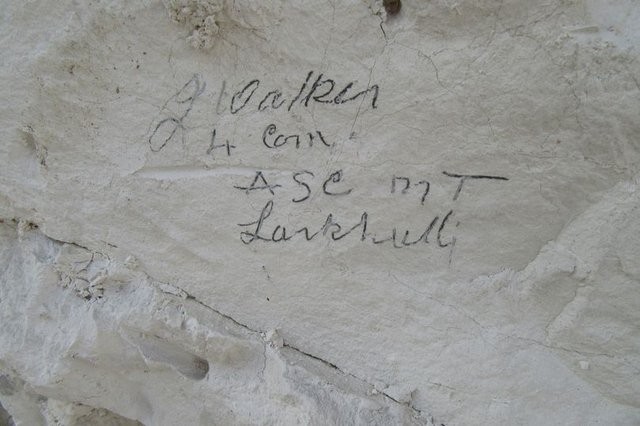 J Walker
4 Com.
ASC MT
Larkhill